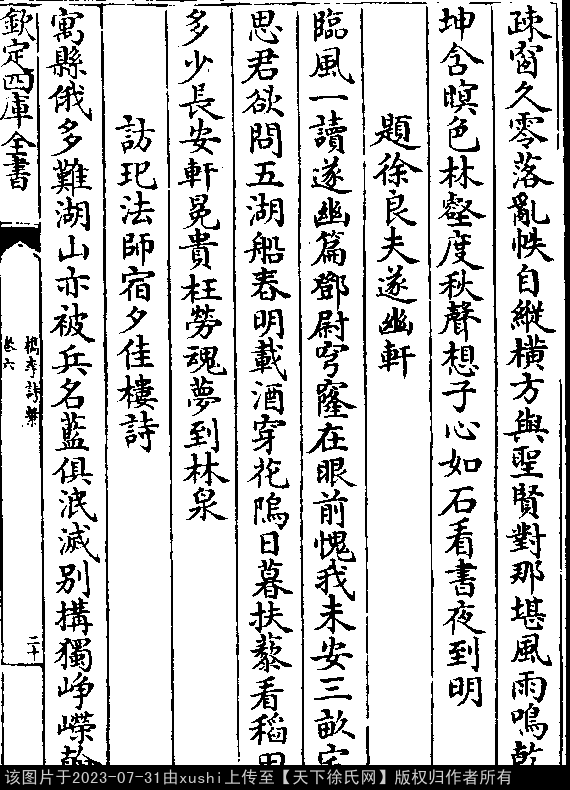 疎窗久零落亂帙自縱横方與聖賢對那堪風雨鳴乾
坤含暝色林壑度秋聲想子心如石看書夜到明
題徐良夫遂幽軒
臨風一讀遂幽篇鄧尉穹窿在眼前愧我未安三畝宅
思君欲問五湖船春明載酒穿花隖日暮扶藜看稻田
多少長安軒冕貴枉勞魂夢到林泉
訪玘法師宿夕佳樓詩
寓縣俄多難湖山亦被兵名藍俱泯滅别搆獨崢嶸
欽定四庫全書
檇李詩繫
卷六
二十
该图片于2023-07-31由xushi上传至【天下徐氏网】版权归作者所有